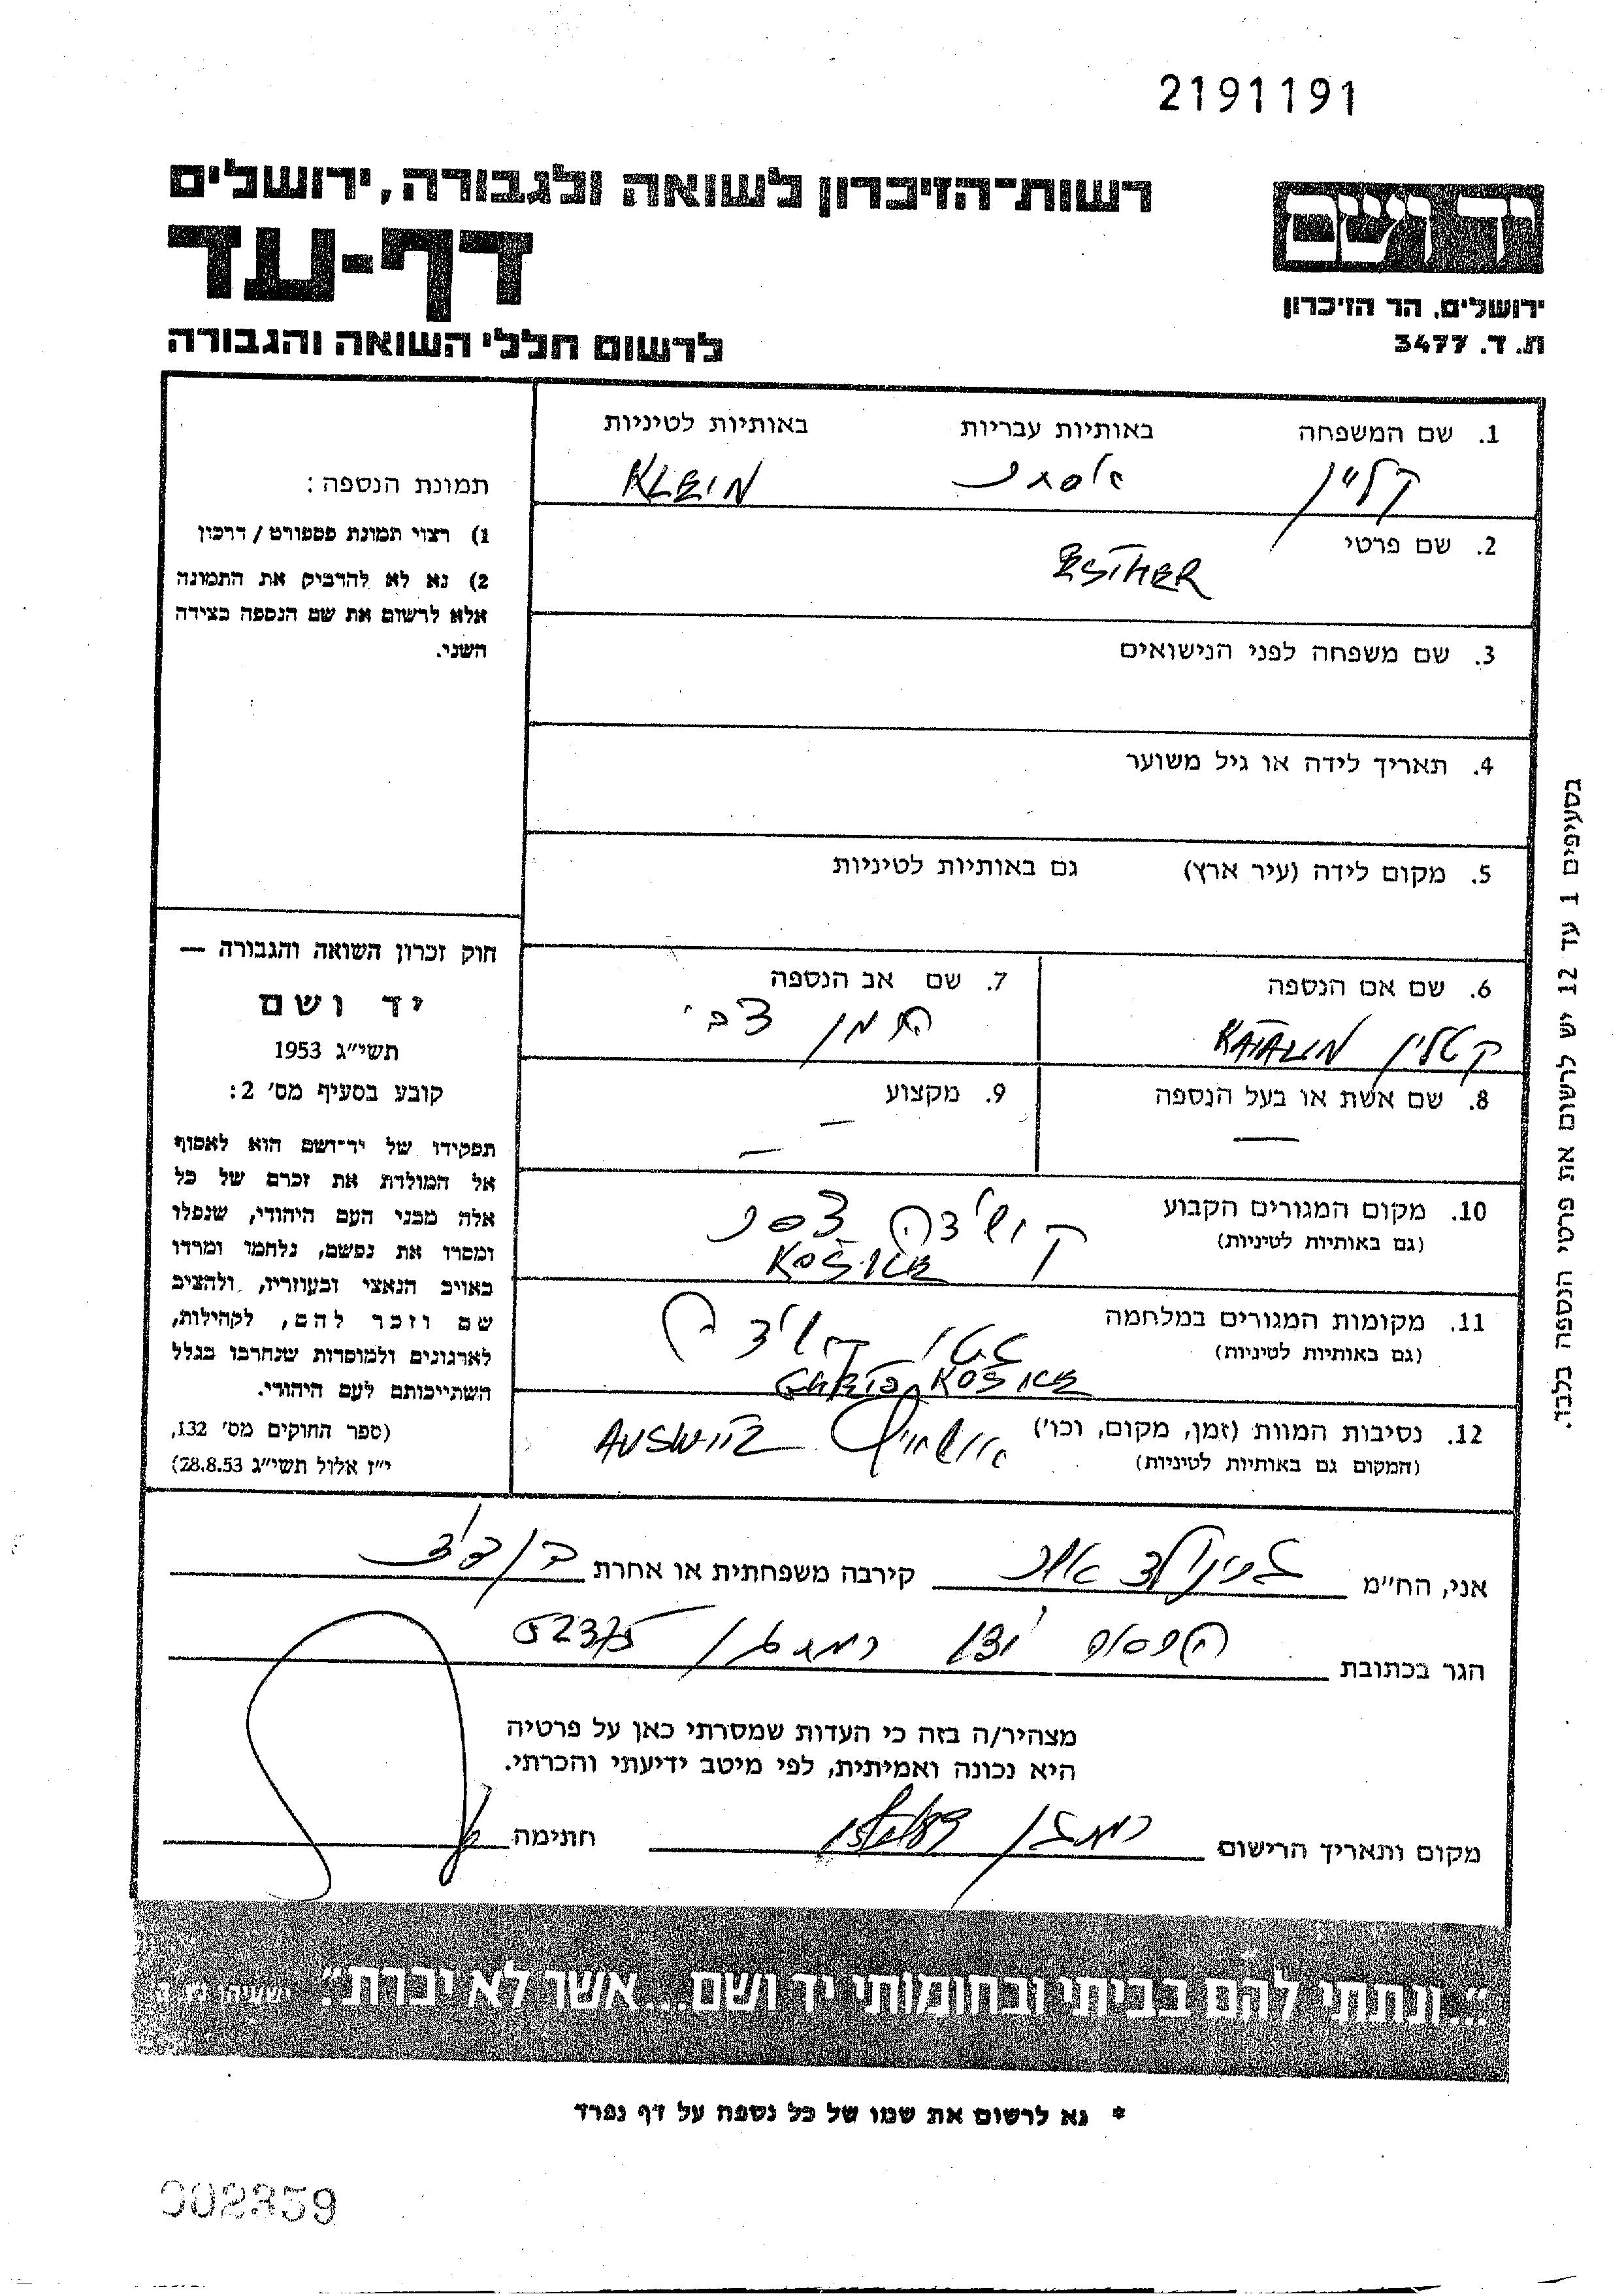 2191191
רשות־הזיכרון לשואה ולגבורה, ירושלים
דף-עד
לרשום חללי השואה והגבורה
יד ושם
ירושלים. הר הזיכרון
ת. ד. 3477
1. שם המשפחה באותיות עבריות באותיות לטיניות
קליין אסתר KLEIN
2. שם פרטי
ESTHER
3. שם משפחה לפני הנישואים
4. תאריך לידה או גיל משוער
5. מקום לידה (עיר ארץ) גם באותיות לטיניות
6. שם אם הנספה
קטלין KATALIN
7. שם אב הנספה
הרמן צבי
8. שם אשת או בעל הנספה
—
9. מקצוע
—
—
10. מקום המגורים הקבוע
(גם באותיות לטיניות)
11. מקומות המגורים במלחמה
(גם באותיות לטיניות)
גטו
12. נסיבות המוות (זמן, מקום, וכו')
(המקום גם באותיות לטיניות)
אושוויץ AUSWITZ
תמונת הנספה:
1) רצוי תמונת פספורט / דרכון
2) נא לא להדביק את התמונה
אלא לרשום את שם הנספה בצידה
השני.
חוק זכרון השואה והגבורה —
יד ושם
תשי"ג 1953
קובע בסעיף מס' 2:
תפקידו של יד־ושם הוא לאסוף
אל המולדת את זכרם של כל
אלה מבני העם היהודי, שנפלו
ומסרו את נפשם, נלחמו ומרדו
באויב הנאצי ובעוזריו, ולהציב
שם וזכר להם, לקהילות,
לארגונים ולמוסדות שנחרבו בגלל
השתייכותם לעם היהודי.
(ספר החוקים מס' 132,
י"ז אלול תשי"ג 28.8.53)
בסעיפים 1 עד 12 יש לרשום את פרטי הנספה בלבד.
אני, הח"מ קירבה משפחתית או אחרת בן דוד
הגר בכתובת רמת גן 52375
מצהיר/ה בזה כי העדות שמסרתי כאן על פרטיה
היא נכונה ואמיתית, לפי מיטב ידיעתי והכרתי.
מקום ותאריך הרישום רמת גן חתימה
"...ונתתי להם בביתי ובחומותי יד ושם...אשר לא יכרת". ישעיהו נו, ה'
* נא לרשום את שמו של כל נספה על דף נפרד
002359